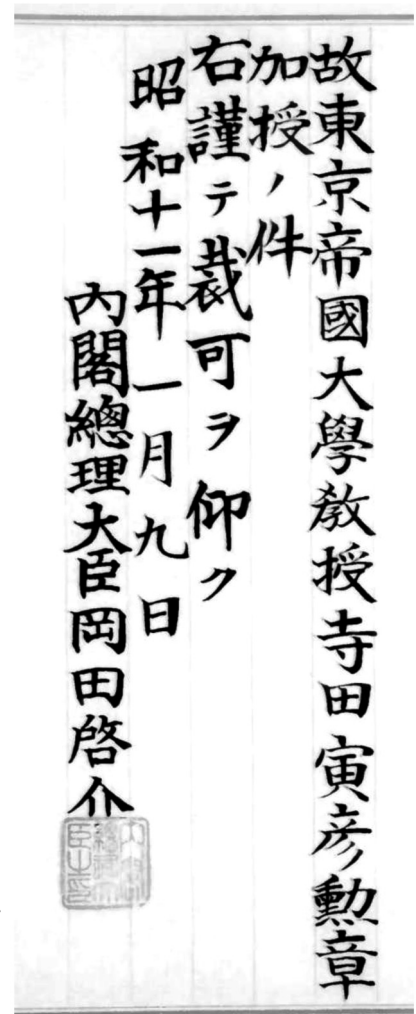 故東京帝國大學教授寺田寅彦勳章
加授ノ件
右謹テ裁可ヲ仰ク
昭和十一年一月九日
內閣總理大臣岡田啓介